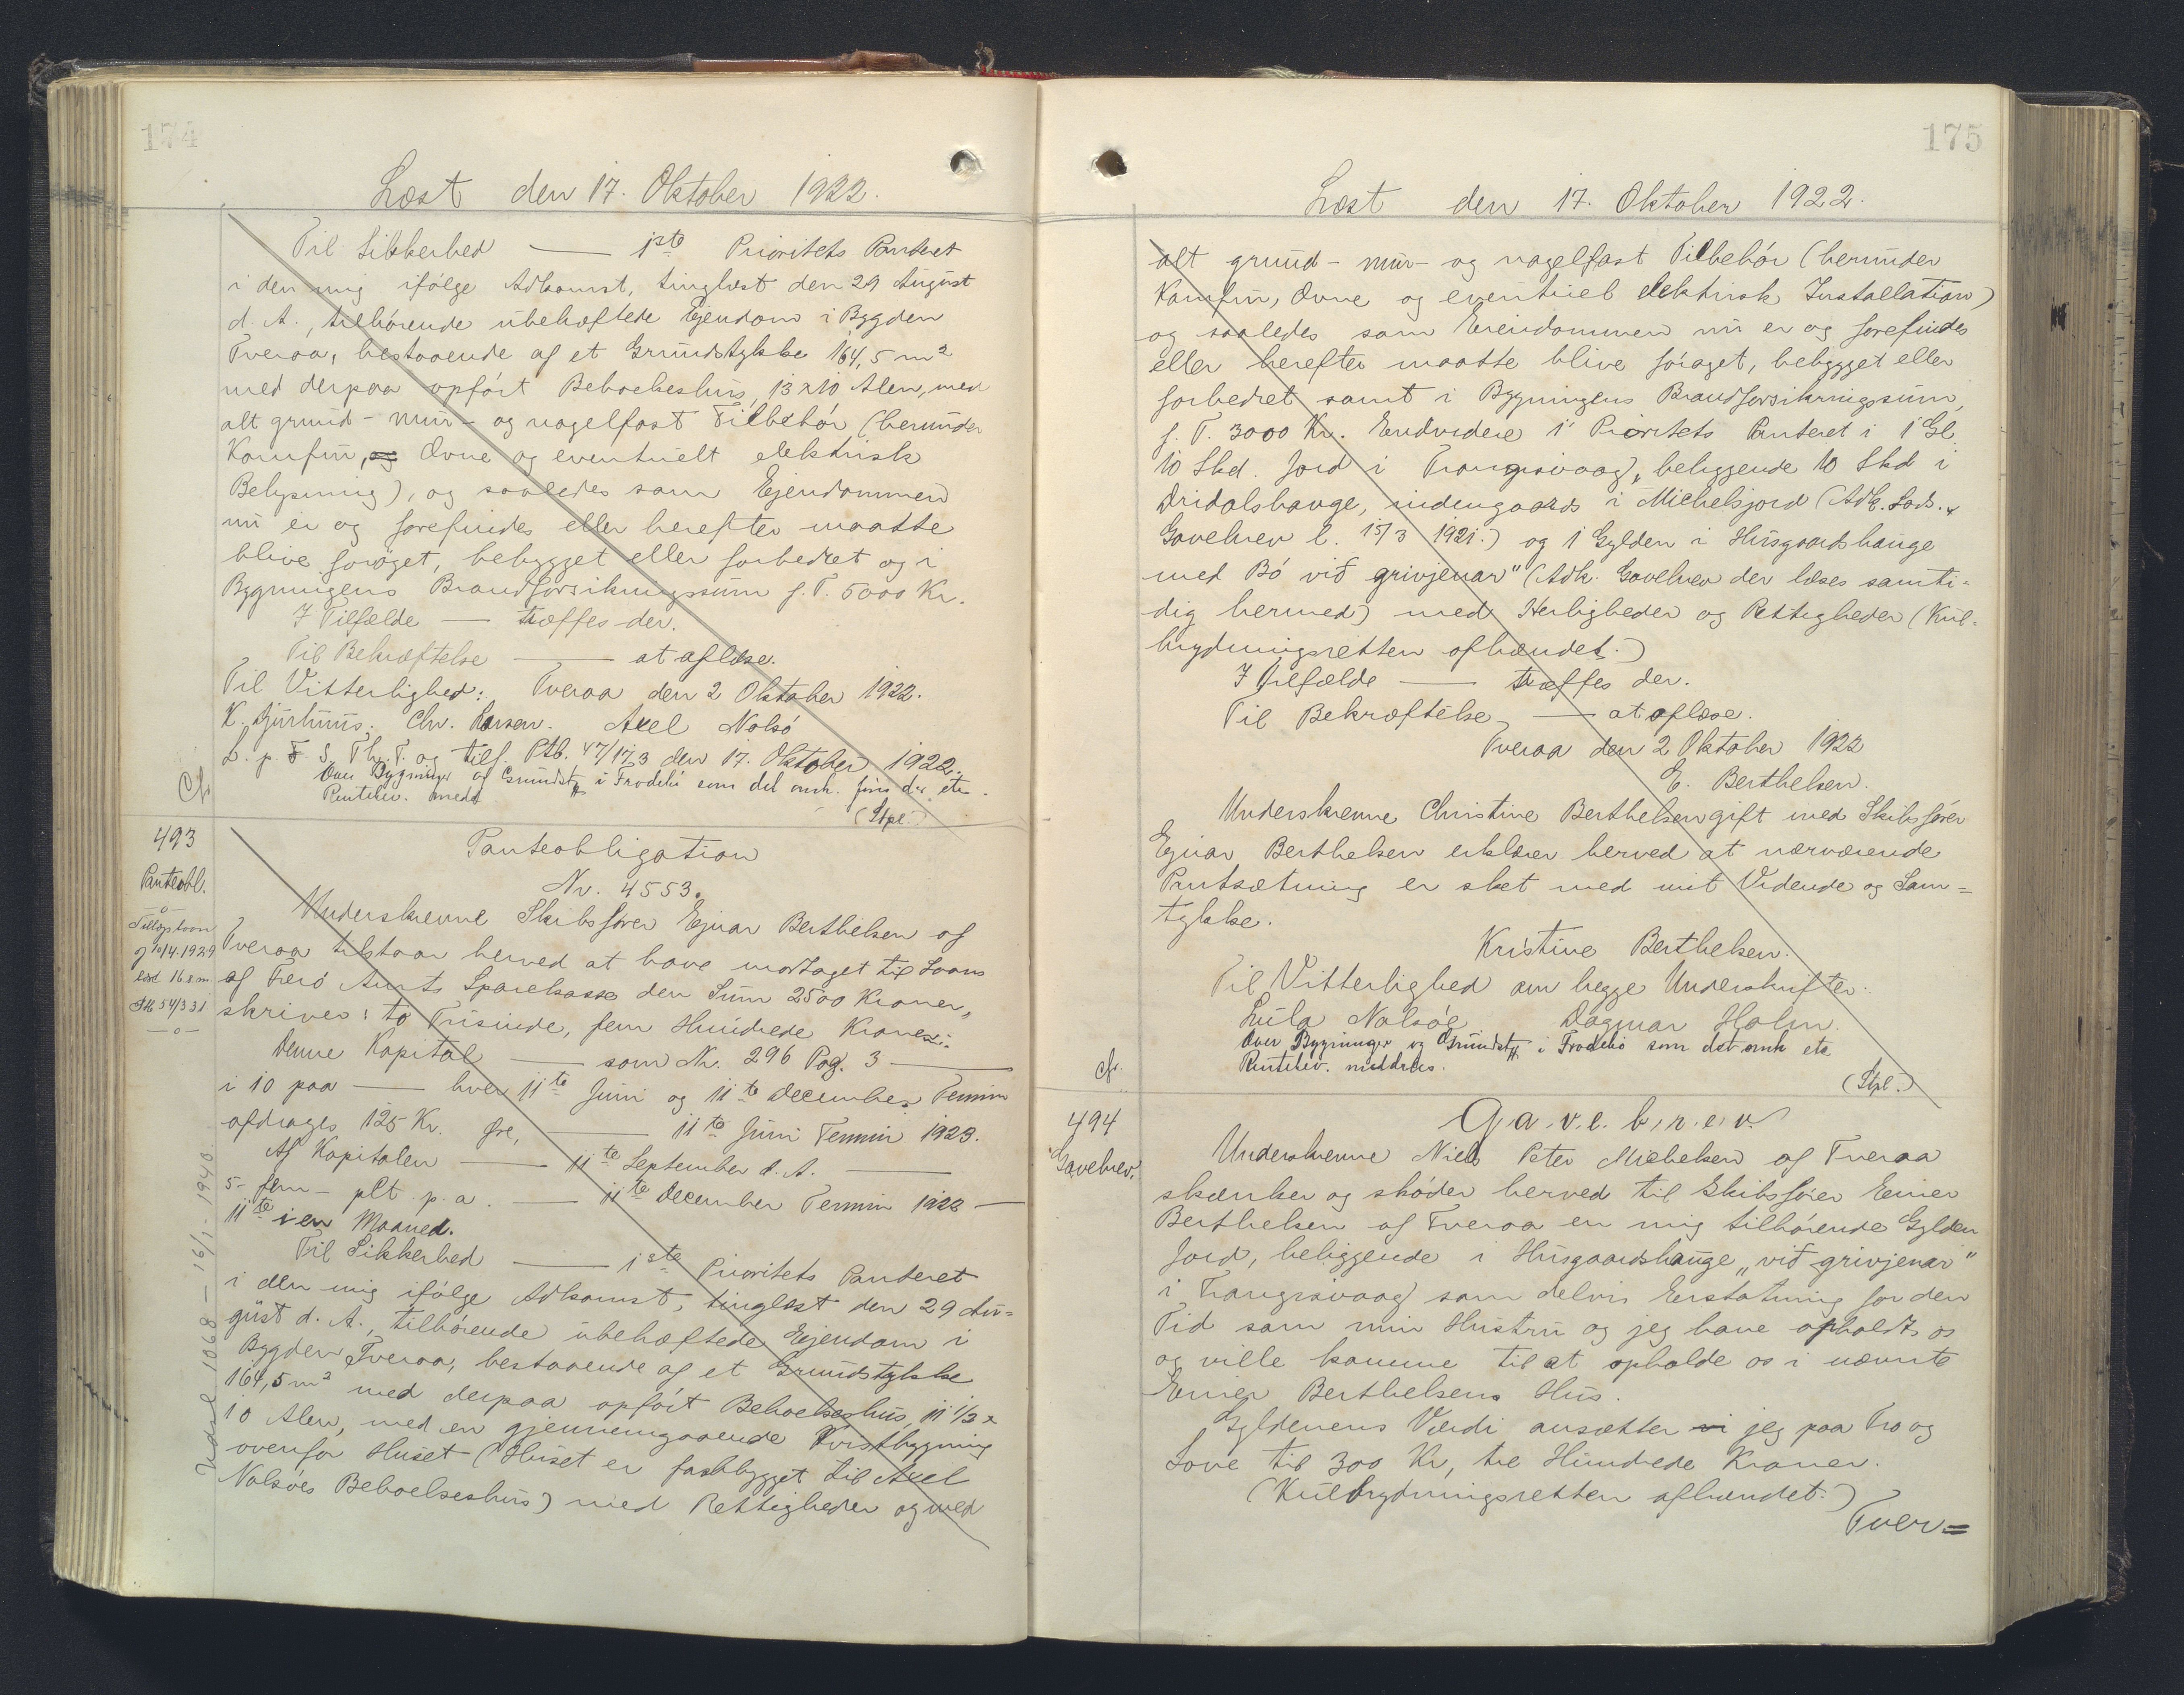 174
Læst den 17. Oktober 1922.
Til Sikkerhed — 1ste Prioritets Panteret
i den mig ifølge Adkomst, tinglæst den 29 August
d. A., tilhørende ubehæftede Ejendom i Bygden
Tveraa, bestaaende af et Grundstykke 164,5 m2
med derpaa opført Beboelseshus, 13 x 10 Alen, med
alt grund- mur- og nagelfast Tilbehør (herunder
Komfur, og Ovne og eventuelt elektrisk
Belysning), og saaledes som Ejendommen
nu er og forefindes eller herefter maatte
blive forøget, bebygget eller forbedret og i
Bygningens Brandforsikringssum f. T. 5000 Kr.
I Tilfælde — træffes der.
Til Bekræftelse — at aflæse.
Til Vitterlighed: Tveraa den 2 Oktober 1922.
K. Djurhuus. Chr. Larsen. Axel Nolsø
L. p. F S. Th. T. og tilf. Ptb. 47/173 den 17. Oktober 1922.
Over Bygninger og Grundst i Frodebø som det omh. fins der etc.
Rentebev. medd
(Stpl.)
Cfr
493
Panteobl.
—o—
Tillægslaan
af 10/4.1929
læst 16 s. m.
Ptb 54/331
—o—
Panteobligation
Nr. 4553.
Underskrevne Skibsfører Ejnar Berthelsen af
Tveraa tilstaar herved at have modtaget til Laans
af Færø Amts Sparekasse den Sum 2500 Kroner,
skriver: to Tusinde, fem Hundrede Kroner.
Denne Kapital — som Nr. 296 Pag. 3 —
i 10 paa — hver 11te Juni og 11te December Termin
afdrages 125 Kr. Øre, — 11te Juni Termin 1923.
Af Kapitalen — 11te September d. A. —
5- fem - pCt. p. a. — 11te December Termin 1922 —
11te i en Maaned.
Til Sikkerhed — 1ste Prioritets Panteret
i den mig ifølge Adkomst, tinglæst den 29 Au=
gust d. A., tilhørende ubehæftede Ejendom i
Bygden Tveraa, bestaaende af et Grundstykke
164,5 m2 med derpaa opført Beboelseshus, 11 1/3 x
10 Alen, med en gjennemgaaende Kvistbygning
ovenfor Huset (Huset er fastbygget til Axel
Nolsøes Beboelseshus) med Rettigheder og med
Udsl 1068 - 16/1. 1940.
175
Læst den 17. Oktober 1922.
alt grund- mur- og nagelfast Tilbehør (herunder
Komfur, Ovne og eventuel elektrisk Installation)
og saaledes som Eiendommen nu er og forefindes
eller herefter maatte blive forøget, bebygget eller
forbedret samt i Bygningens Brandforsikringssum,
f. T. 3000 Kr. Endvidere 1' Prioritets Panteret i 1 Gl.
10 Skd. Jord i Trangisvaag, beliggende 10 Skd i
Dridalshauge, indengaards i Michelsjord (Adk. Lods. &
Gavebrev l. 15/3 1921.) og 1 Gylden i Husgaardshauge
med Bø við grivjenar" (Adk. Gavebrev der læses samti=
dig hermed) med Herligheder og Rettigheder (Kul=
brydningsretten afhændet.)
I Tilfælde — træffes der.
Til Bekræftelse — at aflæse.
Tveraa den 2 Oktober 1922
E. Berthelsen.
Underskrevne Christine Berthelsen gift med Skibsfører
Ejnar Berthelsen erklærer herved at nærværende
Pantsætning er sket med mit Vidende og Sam=
tykke.
Kristine Berthelsen.
Til Vitterlighed om begge Underskrifter:
Lula Nolsøe Dagmar Holm.
Over Bygninger og Grundst i Frodebø som det omh etc
Rentebev. meddeles.
(Stpl.)
Cfr.
494
Gavebrev.
Gavebrev
Underskrevne Niels Peter Michelsen af Tveraa
skænker og skøder herved til Skibsfører Einer
Berthelsen af Tveraa en mig tilhørende Gylden
Jord, beliggende i Husgaardshauge „við grivjenar"
i Trangisvaag som delvis Erstatning for den
Tid som min Hustru og jeg have opholdt os
og ville komme til at opholde os i nævnte
Einer Berthelsens Hus.
Gyldenens Værdi ansætter vi jeg paa Tro og
Love til 300 Kr, tre Hundrede Kroner.
(Kulbrydningsretten afhændet.)
Tver=